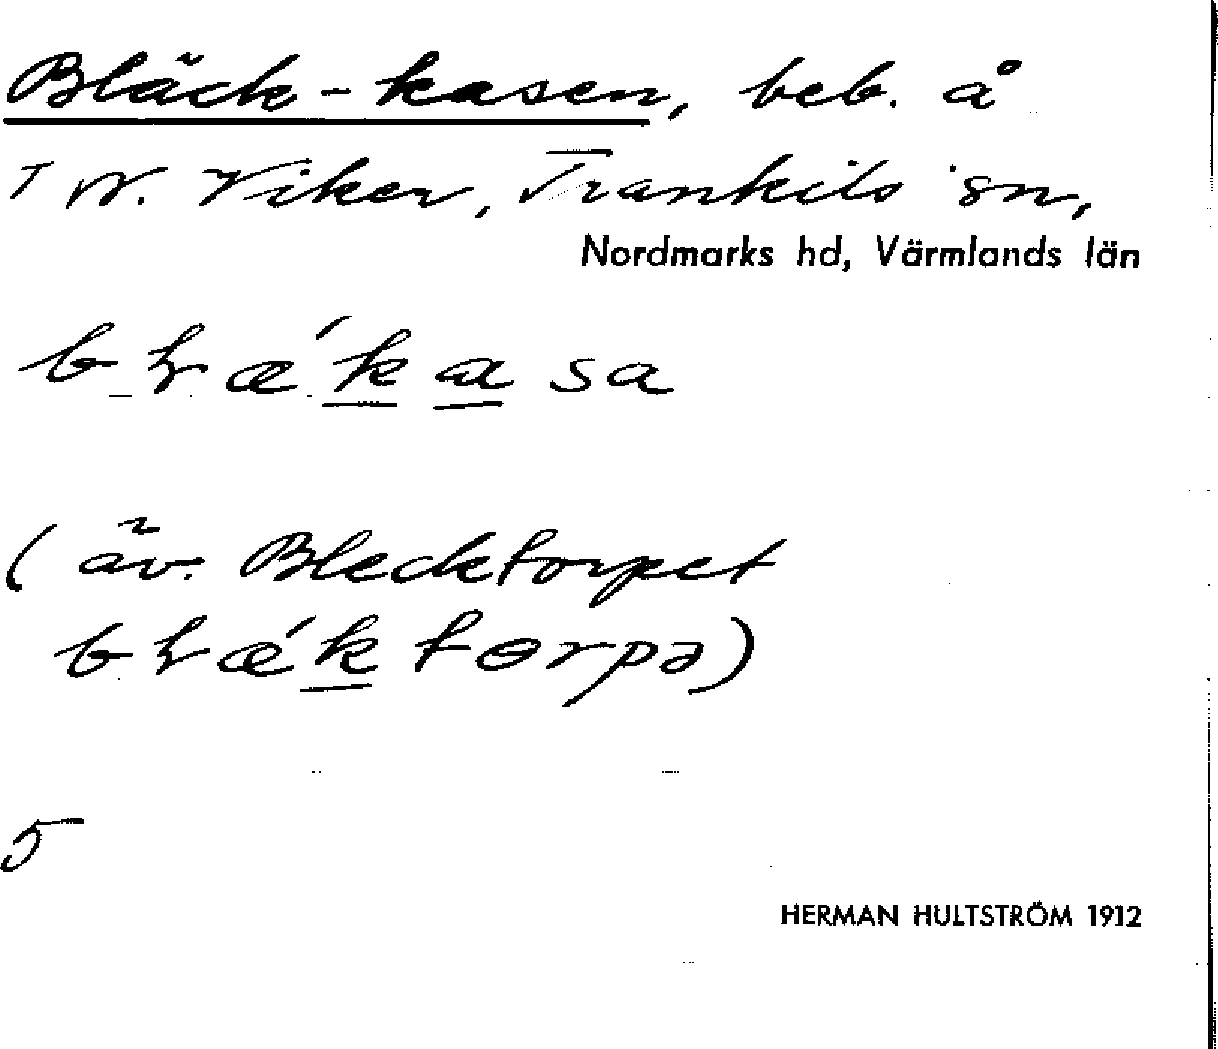 Bläck-kasen, beb. å
T N. Viker, Trankils sn,
Nordmarks hd, Värmlands län
blǽkasa
(äv. Blecktorpet
blǽktɵrpə)
5
HERMAN HULTSTRÖM 1912